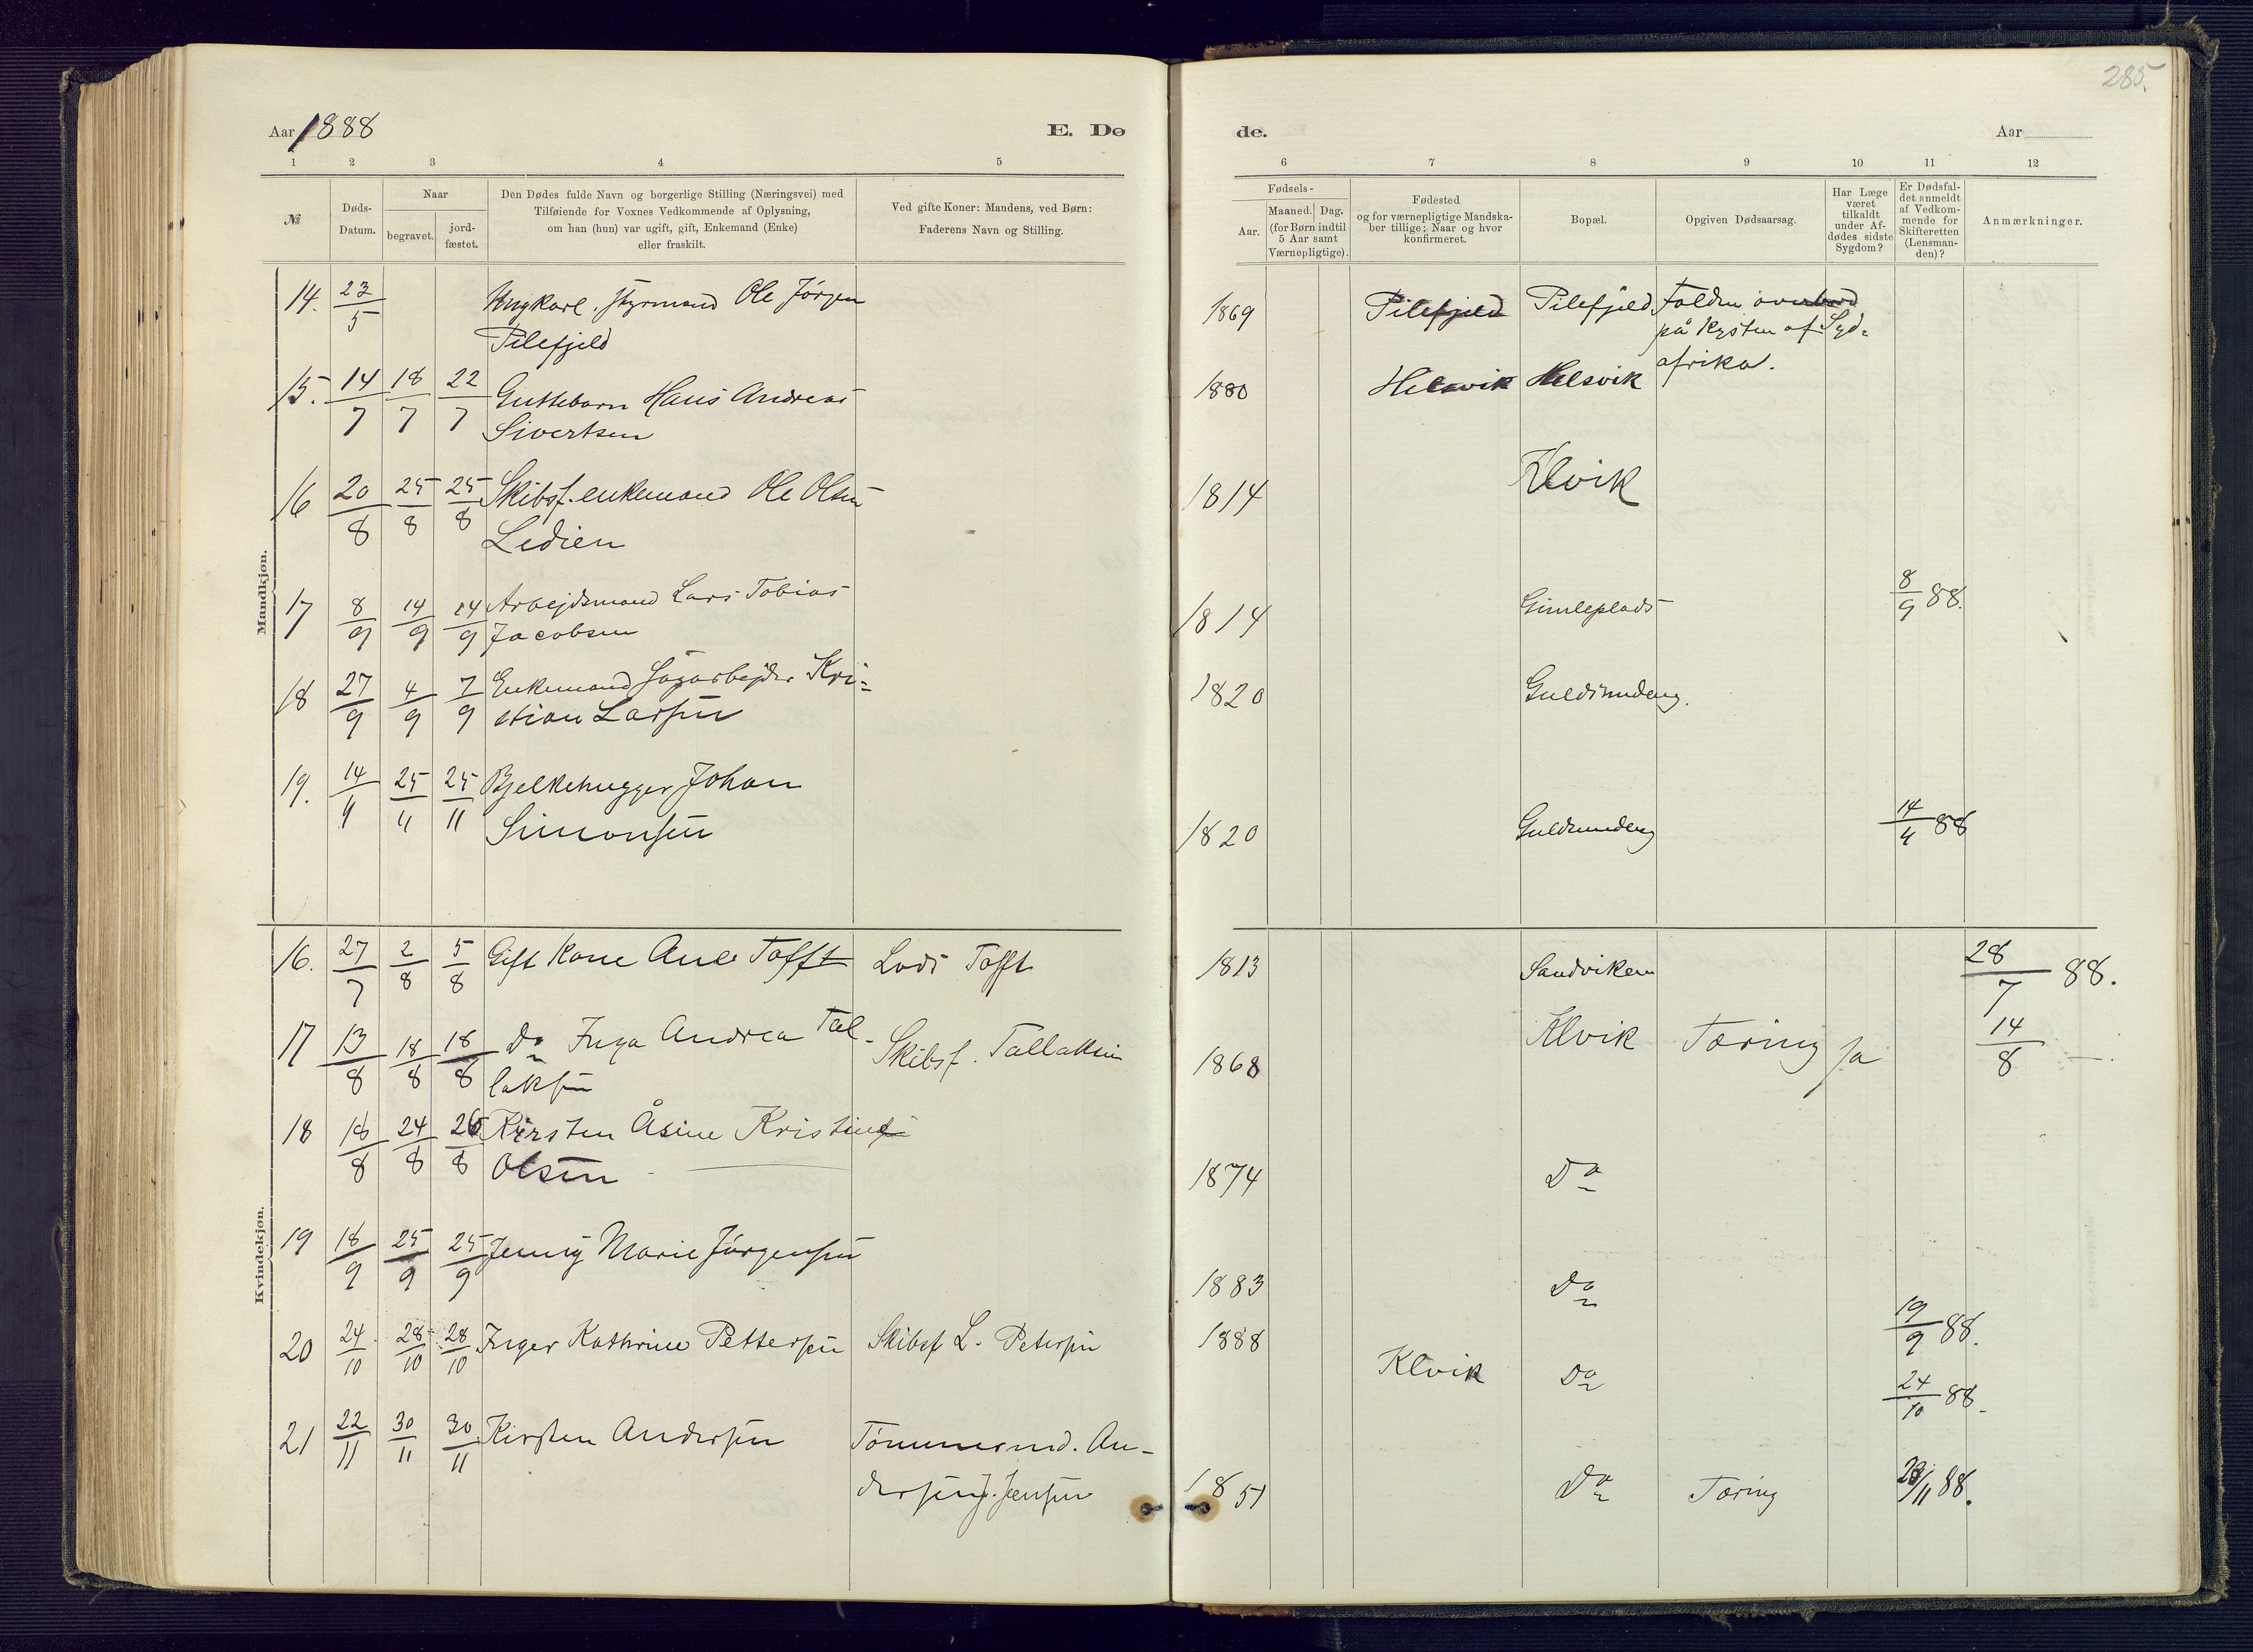 285.
Aar 1888
E. Dø
de.
Aar
1 2 3 4 5
6 7 8 9 10 11 12
№
Døds-
Datum.
Naar
begravet.
jord-
fæstet.
Den Dødes fulde Navn og borgerlige Stilling (Næringsvei) med
Tilføiende for Voxnes Vedkommende af Oplysning,
om han (hun) var ugift, gift, Enkemand (Enke)
eller fraskilt.
Ved gifte Koner: Mandens, ved Børn:
Faderens Navn og Stilling.
Fødsels-
Aar.
Maaned. Dag.
(for Børn indtil
5 Aar samt
Værnepligtige).
Fødested
og for værnepligtige Mandska-
ber tillige: Naar og hvor
konfirmeret.
Bopæl.
Opgiven Dødsaarsag.
Har Læge
været
tilkaldt
under Af-
dødes sidste
Sygdom?
Er Dødsfal-
det anmeldt
af Vedkom-
mende for
Skifteretten
(Lensman-
den)?
Anmærkninger.
Mandkjøn.
14. 23/5 Ungkarl. Styrmand Ole Jörgen 1869 Pilefjeld Pilefjeld Falden overbord
Pilefjeld på Kysten af Syd=
afrika.
15. 14/7 18/7 22/7 Guttebarn Hans Andreas 1880 Helsvik Helsvik
Sivertsen
16 20/8 25/8 25/8 Skibsf. enkemand Ole Olsen 1814 Klvik
Ledien
17 8/9 14/9 14/9 Arbejdsmand Lars Tobias 1814 Gimleplads 8/9 88.
Jacobsen
18 27/9 4/9 7/9 Enkemand Sagarbejder Kri= 1820 Guldsmdeng.
stian Larsen
19. 14/11 25/11 25/11 Bjelkehugger Johan 1820 14/4 88
Simonsen
Kvindekjøn.
16. 27/7 2/8 5/8 Gift Kone Ane Tofft Lods Tofft 1813 Sandviken 28/7 88.
17 13/8 18/8 18/8 Do Inga Andrea Tal- Skibsf. Tallaksen 1868 Klvik Tæring Ja 14/8 —
laksen
18 16/8 24/8 26/8 Kirsten Åsine Kristine 1874 Do
Olsen
19 18/9 25/9 25/9 Jenny Marie Jörgensen 1883 Do 19/9 88.
20 24/10 28/10 28/10 Inger Kathrine Pettersen Skibsf L. Petersen 1888 Klvik Do 24/10 88.
21 22/11 30/11 30/11 Kirsten Andersen Tömmermd. An- 1851 Do Tæring 23/11 88.
dersen J. Jensen